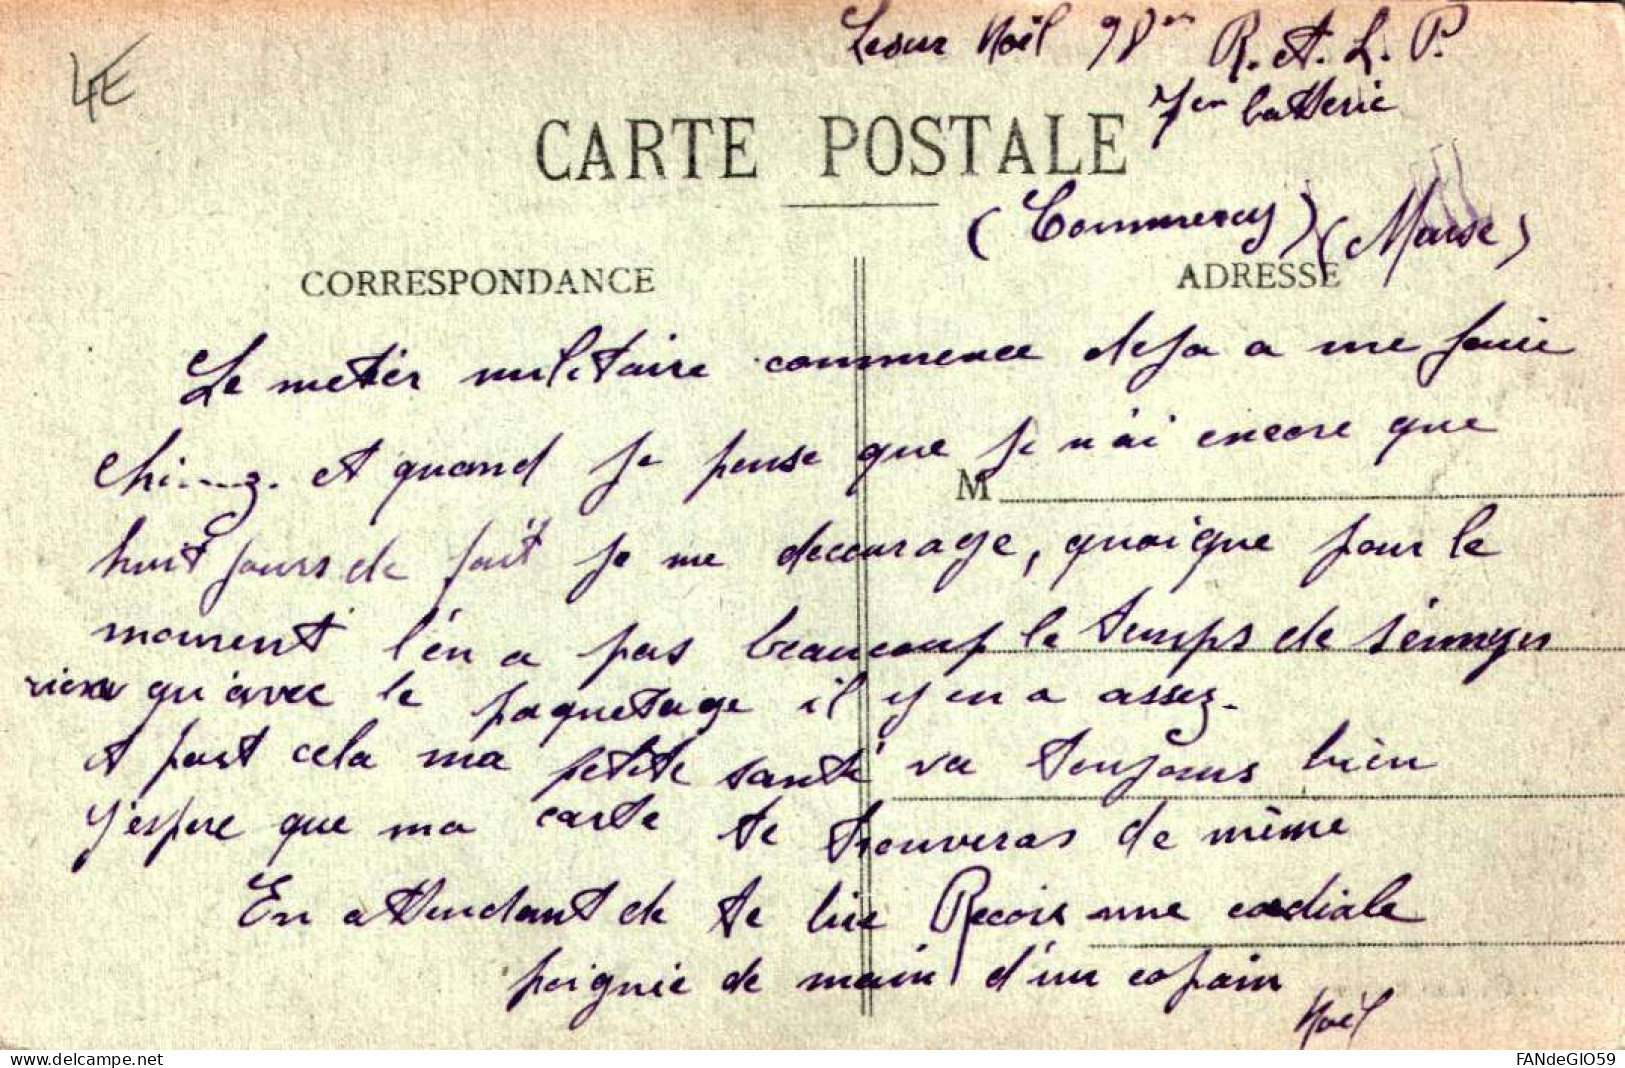 4E
Lesur Noël 98em R. At. L. P.
7em batterie
CARTE POSTALE
(Commercy) (Meuse)
CORRESPONDANCE
ADRESSE
Le metiér militaire commence deja a me faire
M
chi....z. et quand je pense que je n'ai encore que
huit jours de fait je me decourage, quoique pour le
moment l'én a pas beaucoup le temps de s'énnuyer
rien qu'avec le paquetage il y en a assez.
A part cela ma petite santé va toujours bien
J'espère que ma carte te trouveras de même
En attendant de te lire Recois une cordiale
poignie de main d'un copain
Noël
www.delcampe.net
FANdeGIO59